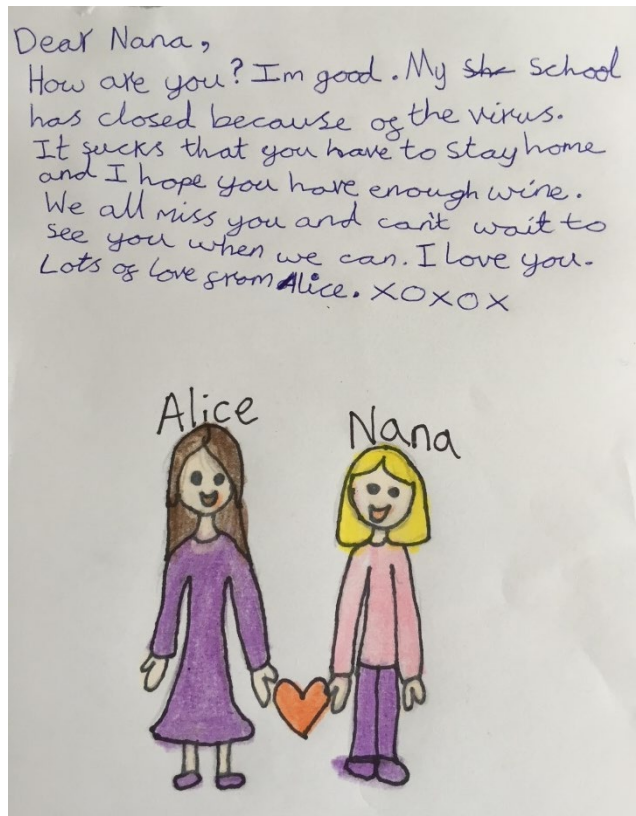 Dear Nana,
How are you? Im good. My She school
has closed because of the virus.
It sucks that you have to stay home
and I hope you have enough wine.
We all miss you and can't wait to
see you when we can. I love you.
Lots of love from Alice. XOXOX
Alice
Nana